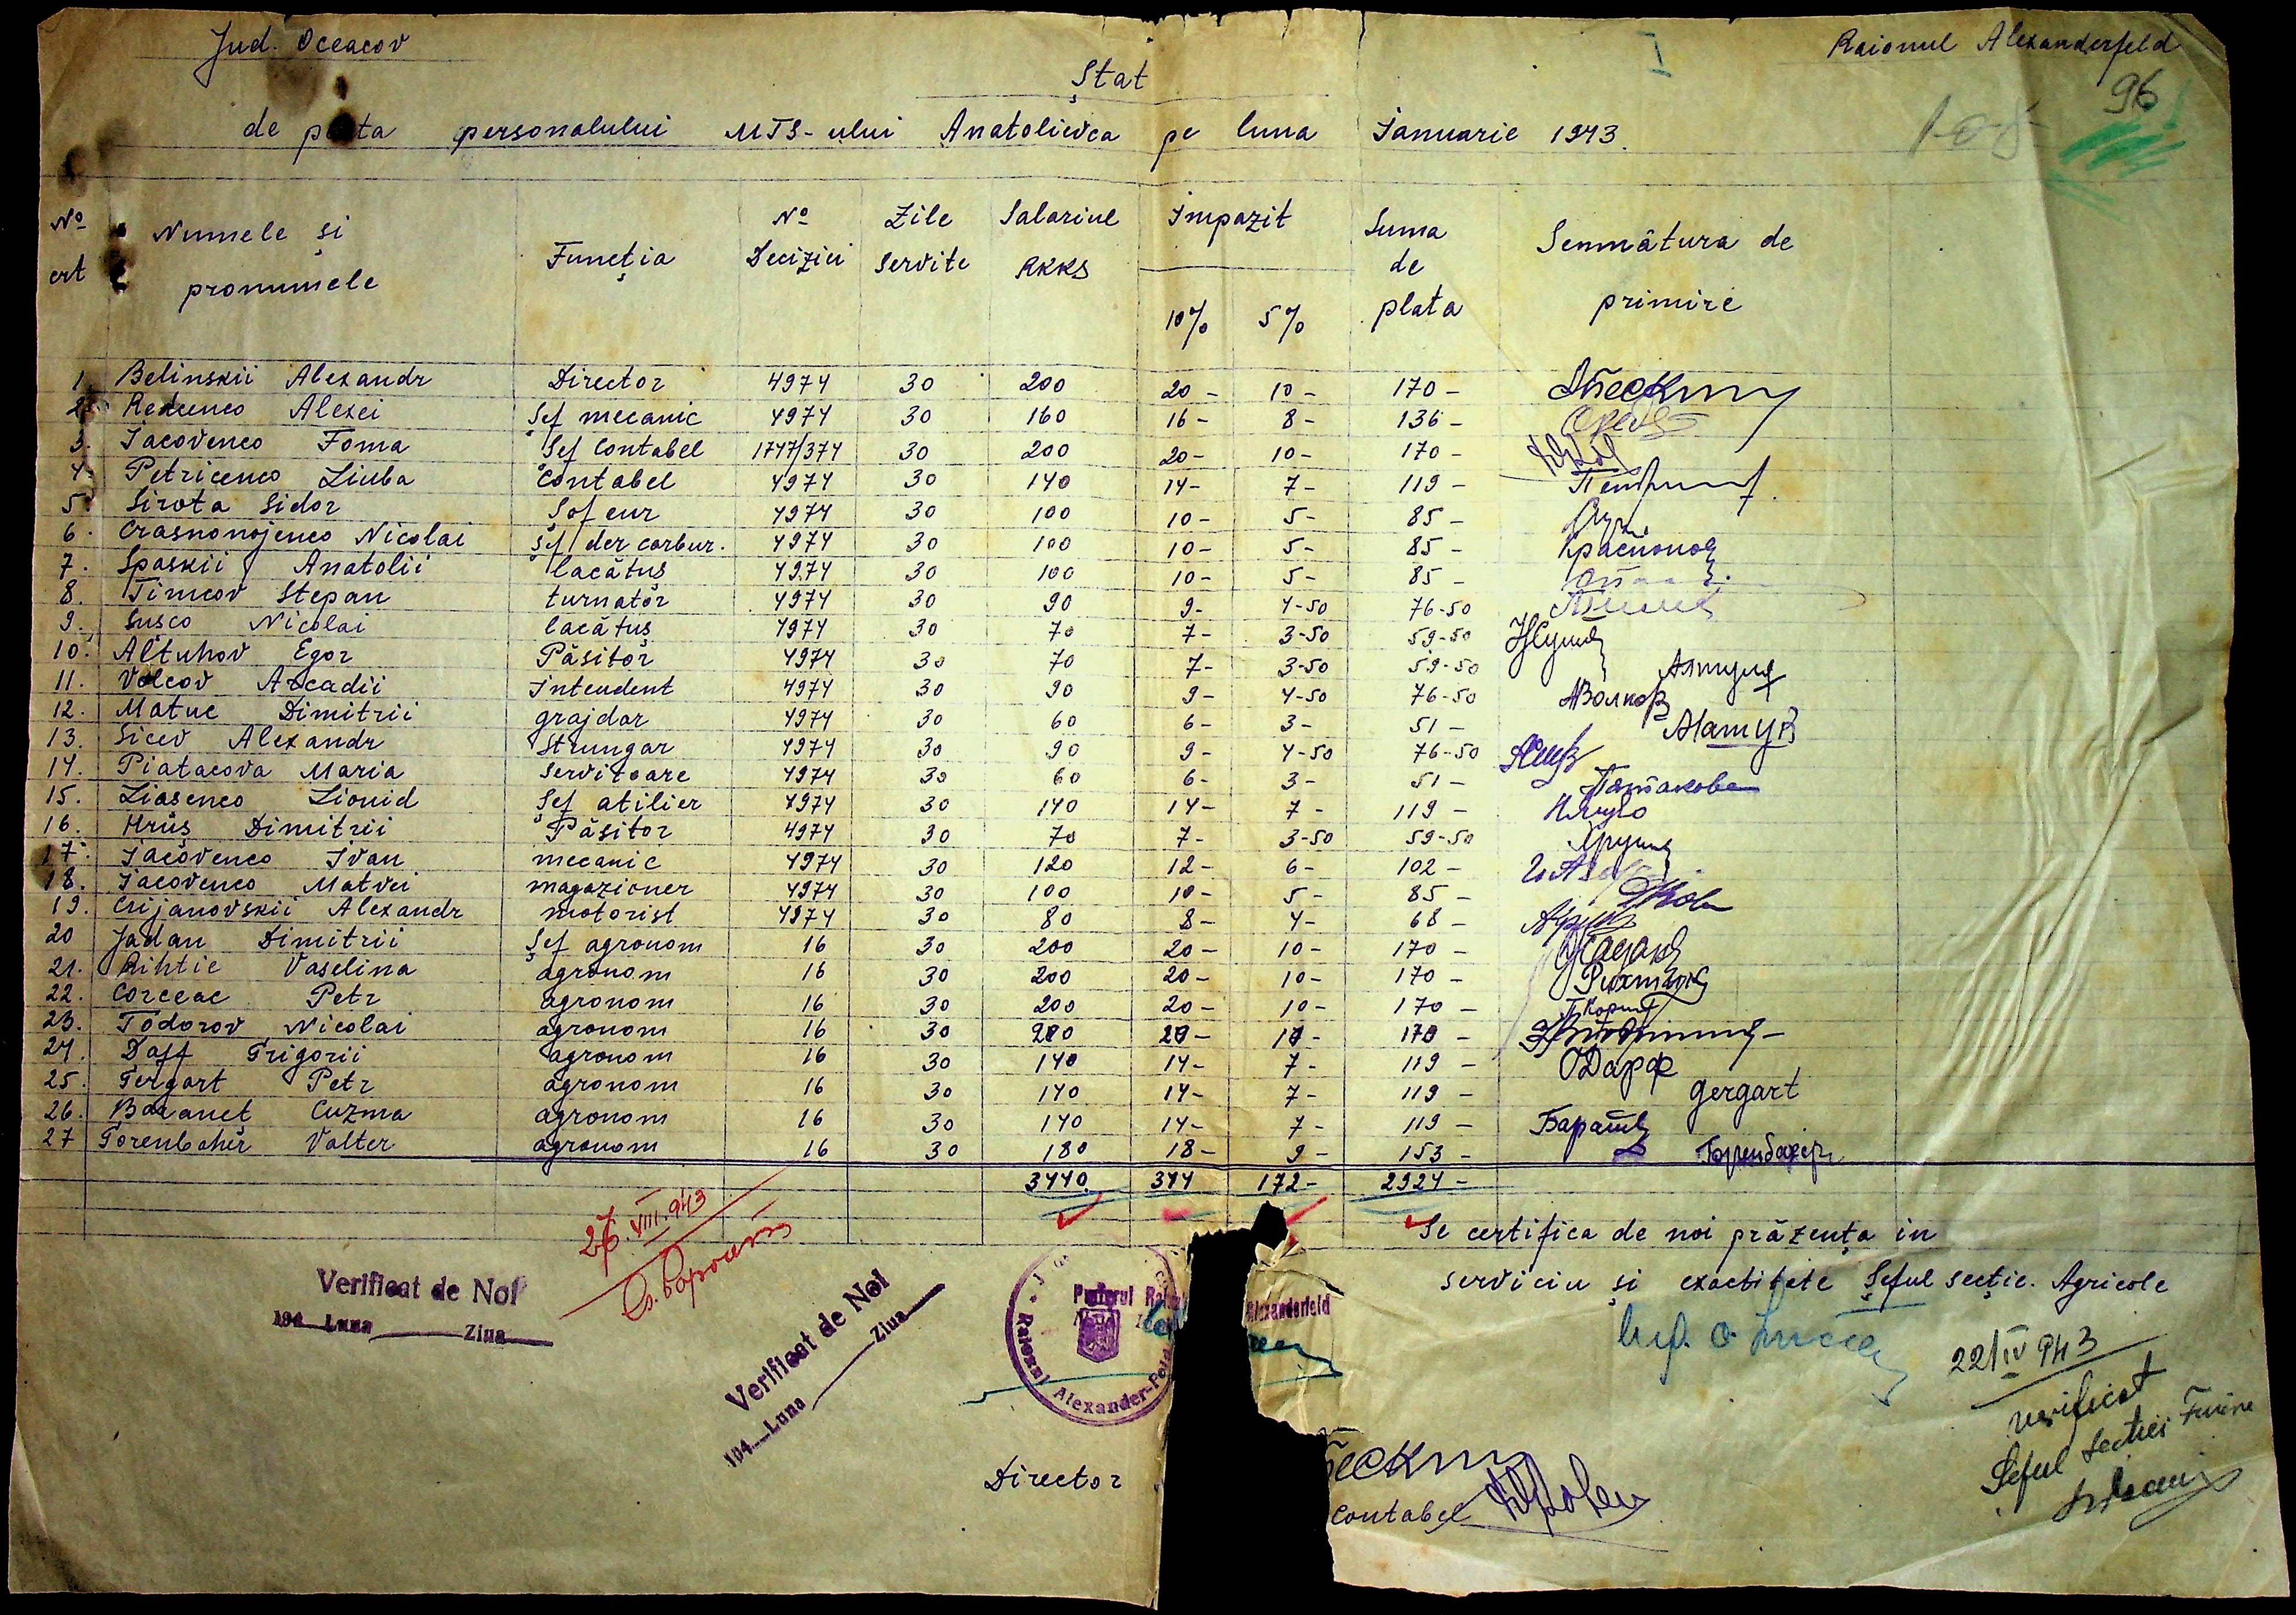 Jud. Oceacov
Raionul Alexanderfeld
96
Ștat
de plata personalului MTS-ului Anatolievca pe luna Ianuarie 1943.
No ert
Numele și pronumele
Funeția
No Deciziei
Zile servite
Salariul RKKS
Impozit
10%
5%
Suma de plata
Semnătura de primire
1. Belinskii Alexandr Director 4974 30 200 20- 10- 170-
2. Redcenco Alexei Șef mecanic 4974 30 160 16- 8- 136-
3. Iacovenco Foma Șef Contabel 1747/374 30 200 20- 10- 170-
4. Petricenco Liuba Contabel 4974 30 140 14- 7- 119-
5. Sirota Sidor Șofeur 4974 30 100 10- 5- 85-
6. Crasnonojenco Nicolai Șef der carbur. 4974 30 100 10- 5- 85-
7. Spaskii Anatolii lacătuș 4974 30 100 10- 5- 85-
8. Timcov Stepan turnator 4974 30 90 9- 4-50 76-50
9. Susco Nicolai lacătuș 4974 30 70 7- 3-50 59-50
10. Altuhov Egor Păsitor 4974 30 70 7- 3-50 59-50
11. Volcov Arcadii Intendent 4974 30 90 9- 4-50 76-50 АВолков
12. Matuc Dimitrii grajdar 4974 30 60 6- 3- 51-
13. Sicev Alexandr Strungar 4974 30 90 9- 4-50 76-50
14. Piatacova Maria Servitoare 4974 30 60 6- 3- 51- Пятакова
15. Liasenco Lionid Șef atilier 4974 30 140 14- 7- 119-
16. Hrușs Dimitrii Păsitor 4974 30 70 7- 3-50 59-50
17. Iacovenco Ivan mecanic 4974 30 120 12- 6- 102-
18. Iacovenco Matvei magazioner 4974 30 100 10- 5- 85-
19. Crijanovskii Alexandr motorist 4974 30 80 8- 4- 68-
20 Jadan Dimitrii Șef agronom 16 30 200 20- 10- 170-
21. Rihtic Vaselina agronom 16 30 200 20- 10- 170-
22. Corceac Petr agronom 16 30 200 20- 10- 170-
23. Todorov Nicolai agronom 16 30 200 20- 10- 170-
24. Daff Grigorii agronom 16 30 140 14- 7- 119-
25. Gergart Petr agronom 16 30 140 14- 7- 119- gergart
26. Baraneț Cuzma agronom 16 30 140 14- 7- 119-
27 Gorenbaher Valter agronom 16 30 180 18- 9- 153- Горенбахер
3440. 344 172- 2924-
27.VIII.943
Se certifica de noi prăzența in
serviciu și exactitete Șeful secție. Agricole
Verificat de Noi
194 Luna Ziua
Verificat de Noi
194 Luna Ziua
Pretorul Raion Alexanderfeld
Raionul Alexander-Feld
22/IV 943
verificat
Șeful Secției
Director
Contabel